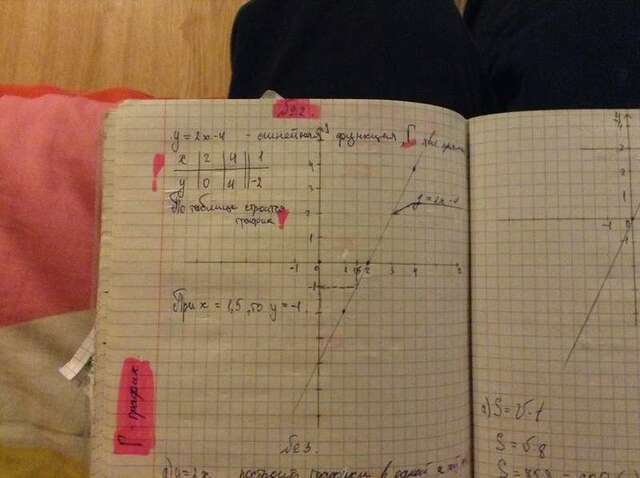 №2.
y = 2x-4 - линейная функция, Г
x 2 4 1
y 0 4 -2
По таблице строится
график
y = 2x-4
4
3
2
1
-1 0 1 1,5 2 3 4
-1
При x = 1,5, то y = -1.
Г - график
№3.
y=2x построить графики в одной
-1 0
) S = v·t
S = v·8